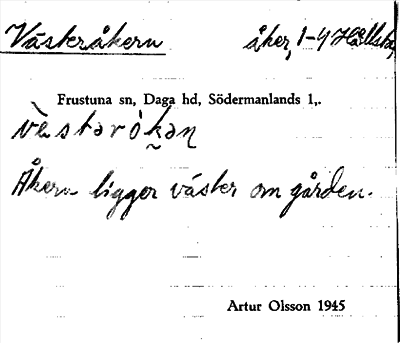 Västeråkern åker, 1-4 Hållsta,
Frustuna sn, Daga hd, Södermanlands l,.
Åkern ligger väster om gården.
Artur Olsson 1945